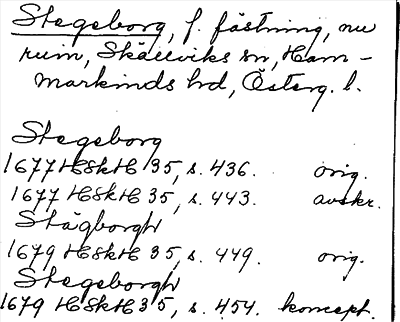 Stegeborg, f. fästning, nu
ruin, Skällviks sn, Ham-
markinds hd, Österg. l.
Stegeborg
1677 HSkH 35, s. 436. orig.
1677 HSkH 35, s. 443. avskr.
Stägborgh
1679 HSkH 35, s. 449. orig.
Stegeborgh
1679 HSkH 35, s. 454. koncept.